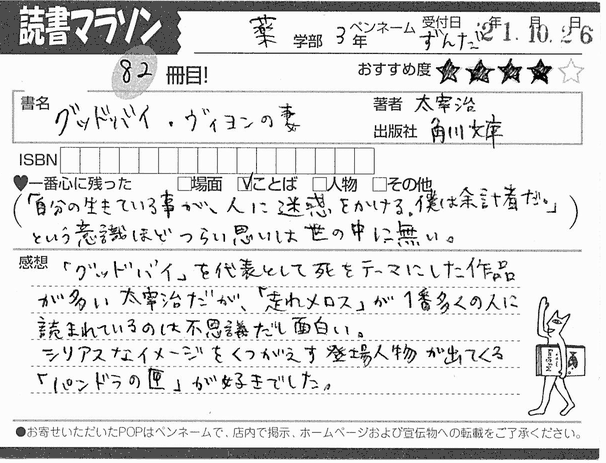 読書マラソン
薬 学部 3年 ペンネーム ずんだ 受付日 '21年10月26日
82 冊目! おすすめ度 ★★★★☆
書名 グッドバイ・ヴィヨンの妻
著者 太宰治
出版社 角川文庫
ISBN
♥一番心に残った □場面 ☑ことば □人物 □その他
(「自分の生きている事が、人に迷惑をかける。僕は余計者だ。」
という意識ほどつらい思いは世の中に無い。)
感想 「グッドバイ」を代表として死をテーマにした作品
が多い太宰治だが、「走れメロス」が1番多くの人に
読まれているのは不思議だし面白い。
シリアスなイメージをくつがえす登場人物が出てくる
「パンドラの匣」が好きでした。
●お寄せいただいたPOPはペンネームで、店内で掲示、ホームページおよび宣伝物への転載をご了承ください。